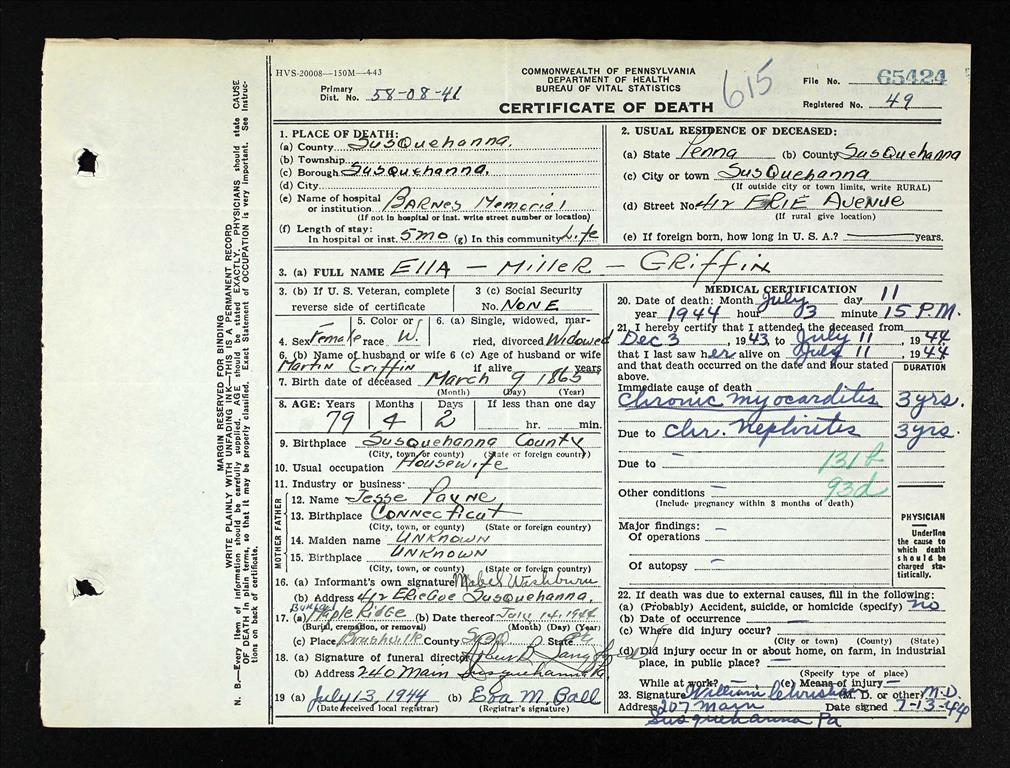 HVS-20008—150M—4-43
COMMONWEALTH OF PENNSYLVANIA
DEPARTMENT OF HEALTH
BUREAU OF VITAL STATISTICS
CERTIFICATE OF DEATH
615
Primary
Dist. No. 58-08-41
File No. 65424
Registered No. 49
MARGIN RESERVED FOR BINDING
WRITE PLAINLY WITH UNFADING INK—THIS IS A PERMANENT RECORD
N. B.—Every item of information should be carefully supplied. AGE should be stated EXACTLY. PHYSICIANS should state CAUSE
OF DEATH in plain terms, so that it may be properly classified. Exact Statement of OCCUPATION is very important. See Instruc-
tions on back of certificate.
1. PLACE OF DEATH:
(a) County SusQuehanna.
(b) Township
(c) Borough SusQuehanna.
(d) City
(e) Name of hospital
or institution BARNES Memorial
(If not in hospital or inst. write street number or location)
(f) Length of stay:
In hospital or inst. 5 mo (g) In this community Life
2. USUAL RESIDENCE OF DECEASED:
(a) State Penna (b) County SusQuehanna
(c) City or town SusQuehanna
(If outside city or town limits, write RURAL)
(d) Street No. 412 ERIE Avenue
(If rural give location)
(e) If foreign born, how long in U. S. A.? years.
3. (a) FULL NAME Ella — Miller — Griffin
3. (b) If U. S. Veteran, complete
reverse side of certificate
3 (c) Social Security
No. NONE
4. Sex Female
5. Color or
race W.
6. (a) Single, widowed, mar-
ried, divorced Widowed
6. (b) Name of husband or wife
Martin Griffin
6 (c) Age of husband or wife
if alive years
7. Birth date of deceased March 9 1865
(Month) (Day) (Year)
8. AGE: Years Months Days If less than one day
79 4 2 hr. min.
9. Birthplace Susquehanna County
(City, town, or county) (State or foreign country)
10. Usual occupation Housewife
11. Industry or business
FATHER
12. Name Jesse Payne
13. Birthplace Connecticut
(City, town, or county) (State or foreign country)
MOTHER
14. Maiden name UNKNOWN
15. Birthplace UNKNOWN
(City, town, or county) (State or foreign country)
16. (a) Informant's own signature Mabel Washburn
(b) Address 412 Erie Ave Susquehanna.
17. (a) Burial Maple Ridge (b) Date thereof July 14, 1944
(Burial, cremation, or removal) (Month) (Day) (Year)
(c) Place Brushville County State
18. (a) Signature of funeral director
(b) Address 240 Main Susquehanna Pa.
19 (a) July 13, 1944 (b) Eva M. Ball
(Date received local registrar) (Registrar's signature)
MEDICAL CERTIFICATION
20. Date of death: Month July day 11
year 1944 hour 3 minute 15 P.M.
21. I hereby certify that I attended the deceased from
Dec 3, 1943 to July 11, 1944
that I last saw her alive on July 11, 1944
and that death occurred on the date and hour stated
above.
DURATION
Immediate cause of death
Chronic myocarditis 3 yrs.
Due to Chr. Nephritis 3 yrs.
Due to — 131 b
93d
Other conditions —
(Include pregnancy within 3 months of death)
Major findings:
Of operations —
Of autopsy —
PHYSICIAN
Underline
the cause to
which death
should be
charged sta-
tistically.
22. If death was due to external causes, fill in the following:
(a) (Probably) Accident, suicide, or homicide (specify) no
(b) Date of occurrence —
(c) Where did injury occur?
(City or town) (County) (State)
(d) Did injury occur in or about home, on farm, in industrial
place, in public place? —
(Specify type of place)
While at work? (e) Means of injury —
23. Signature William (M. D. or other) M.D.
Address 207 Main Date signed 7-13-44
Susquehanna Pa